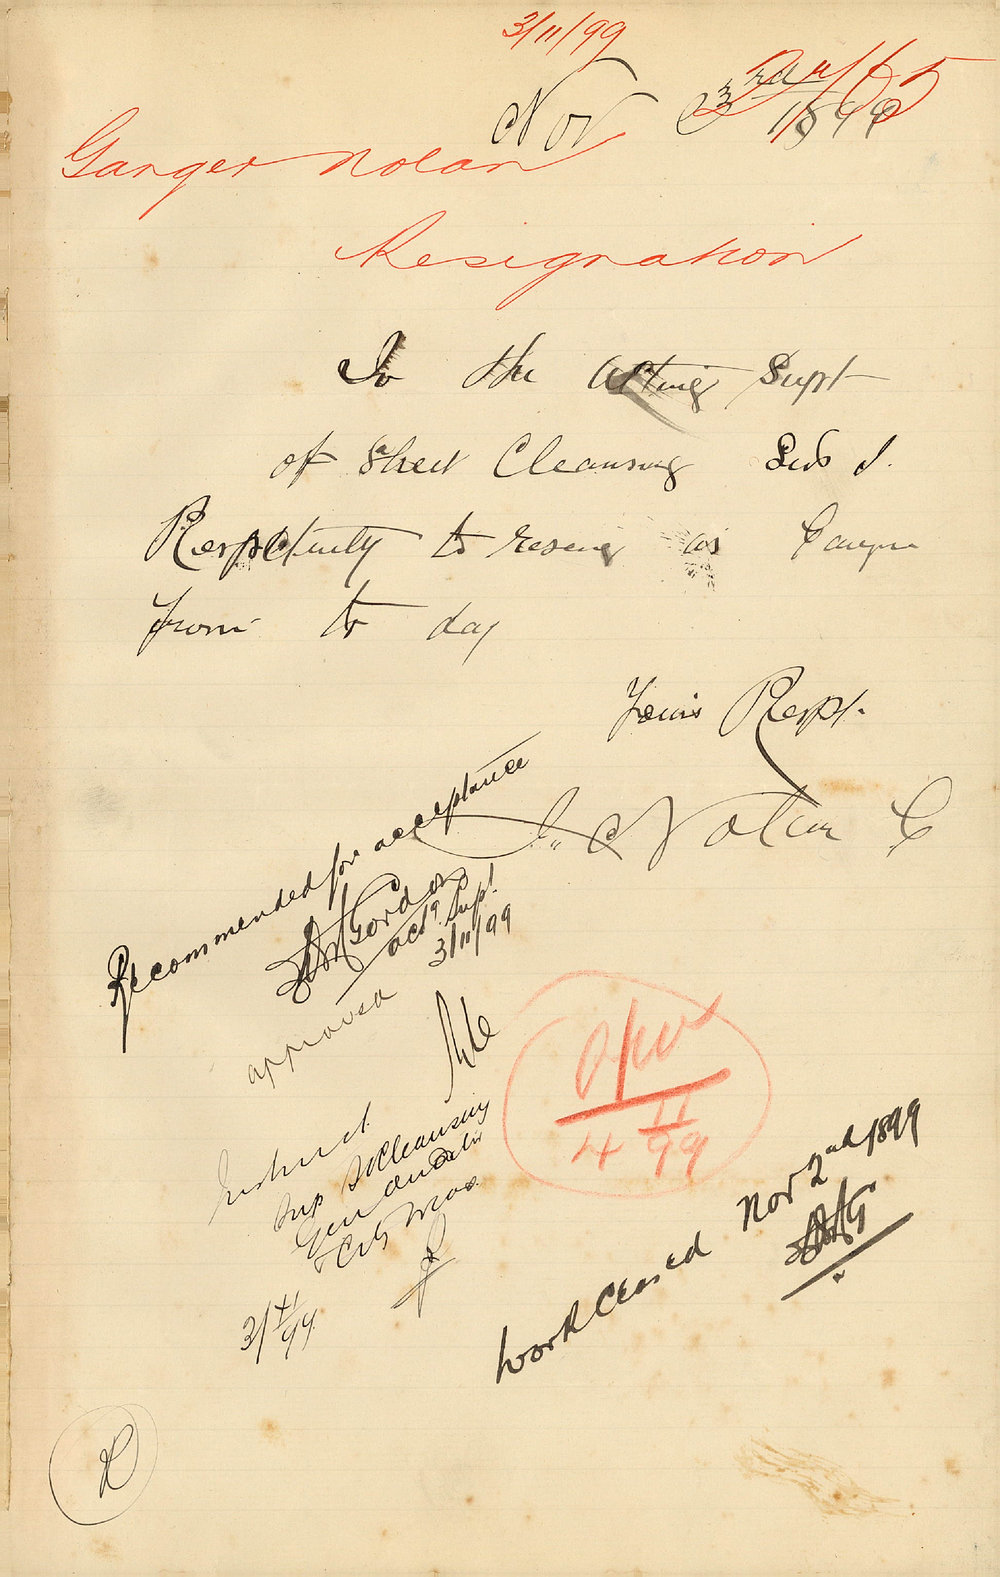 3/11/99
Nov 3rd 1899
Ganger Nolan
Resignation
To the Acting Supt
of Street Cleansing Sir I
Respectfully to resign as Ganger
from to day
Yours Respt.
J. Nolan
Recommended for acceptance
Gordon
actg Supt.
3/11/99
approved
Instruct
Sup St Cleansing
City
3/11/99
4 11 99
Work Ceased Nov 2nd 1899